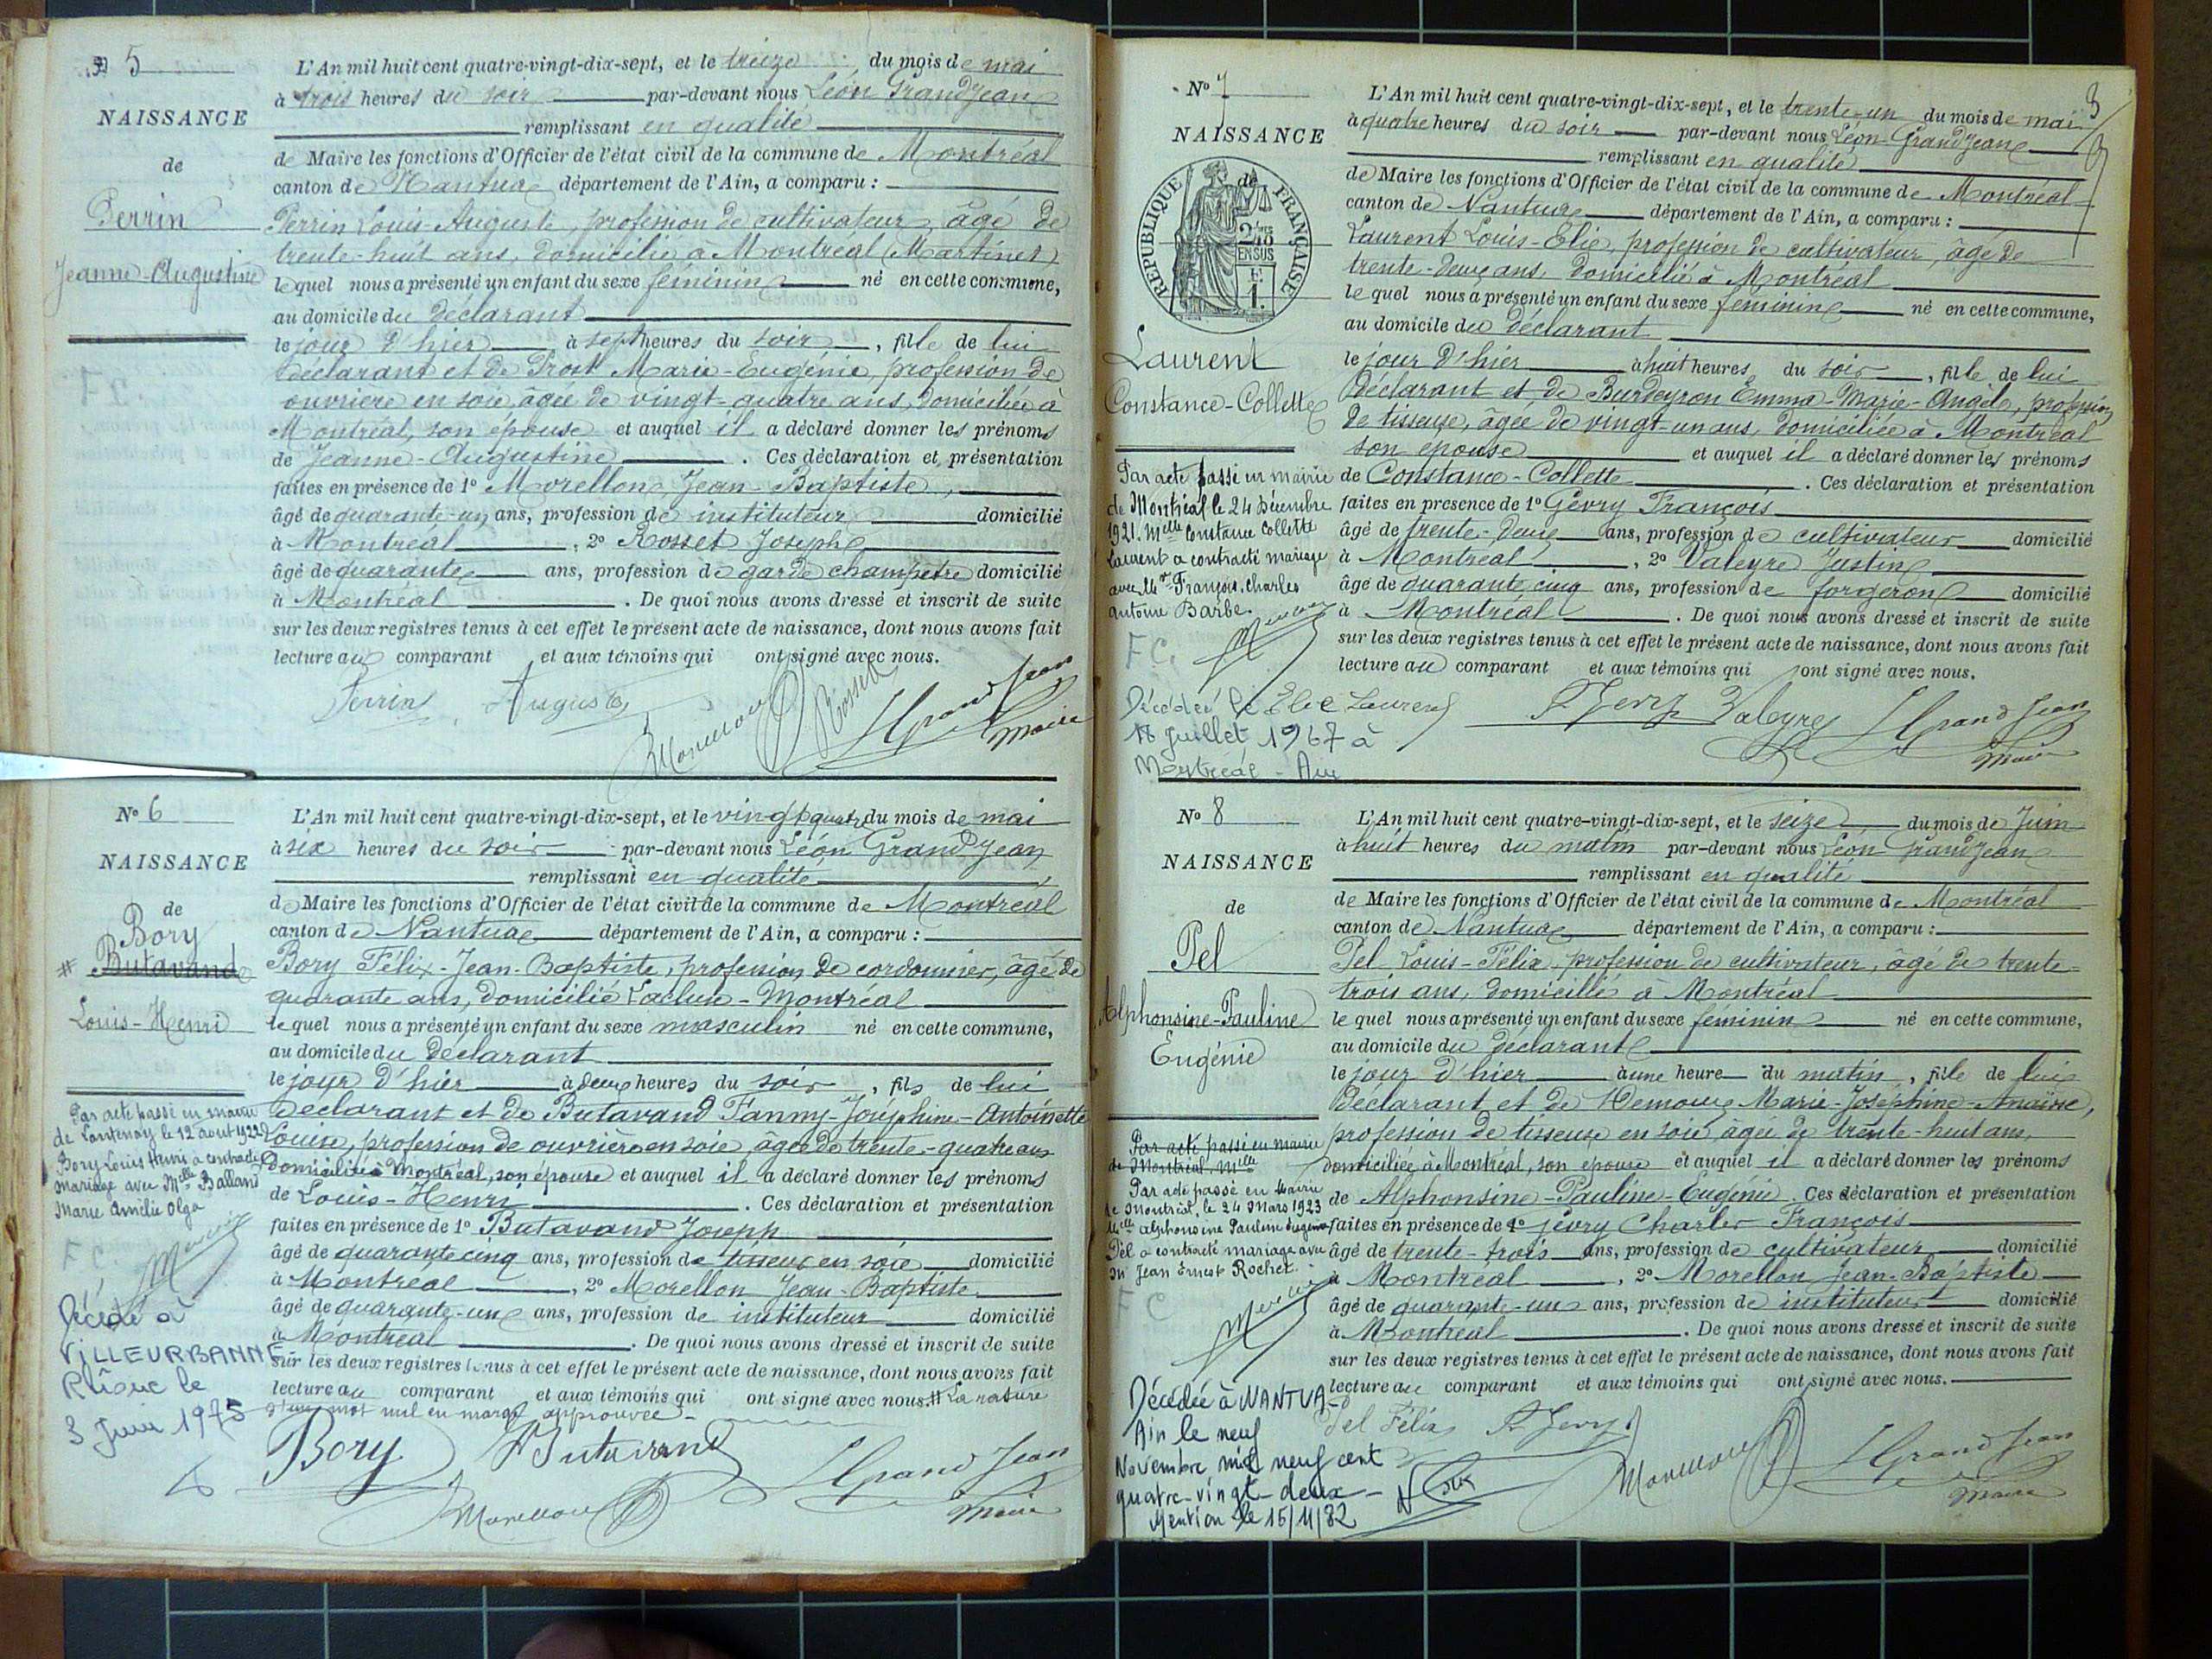 N° 5
NAISSANCE
de
Perrin
Jeanne-Augustine
L'An mil huit cent quatre-vingt-dix-sept, et le treize du mois de mai
à trois heures du soir par-devant nous Léon Grandjean
remplissant en qualité
de Maire les fonctions d'Officier de l'état civil de la commune de Montréal
canton de Nantua département de l'Ain, a comparu :
Perrin Louis-Auguste, profession de cultivateur, âgé de
trente-huit ans, domicilié à Montréal (Martinet)
lequel nous a présenté un enfant du sexe féminin né en cette commune,
au domicile du déclarant
le jour d'hier à sept heures du soir, fille de lui
déclarant et de Prost Marie-Eugénie, profession de
ouvrière en soie, âgée de vingt-quatre ans, domiciliée à
Montréal, son épouse et auquel il a déclaré donner les prénoms
de Jeanne-Augustine. Ces déclaration et présentation
faites en présence de 1° Morellon, Jean-Baptiste,
âgé de quarante-un ans, profession de instituteur domicilié
à Montréal, 2° Rosset Joseph
âgé de quarante ans, profession de garde champêtre domicilié
à Montréal. De quoi nous avons dressé et inscrit de suite
sur les deux registres tenus à cet effet le présent acte de naissance, dont nous avons fait
lecture au comparant et aux témoins qui ont signé avec nous.
Perrin Auguste Morellon Rosset LGrandJean
Maire
N° 6
NAISSANCE
de
Bory
# Butavand
Louis-Henri
Par acte passé en mairie
de Lantenay le 12 août 1922
Bory Louis Henri a contracté
mariage avec Melle Balland
Marie Amélie Olga
F C.
Décédé à
VILLEURBANNE
Rhône le
3 Juin 1975
L'An mil huit cent quatre-vingt-dix-sept, et le vingt quatre du mois de mai
à six heures du soir par-devant nous Léon Grandjean
remplissant en qualité
de Maire les fonctions d'Officier de l'état civil de la commune de Montréal
canton de Nantua département de l'Ain, a comparu :
Bory Félix-Jean-Baptiste, profession de cordonnier, âgé de
quarante ans, domicilié Lacluse-Montréal
lequel nous a présenté un enfant du sexe masculin né en cette commune,
au domicile du déclarant
le jour d'hier à deux heures du soir, fils de lui
déclarant et de Butavand Fanny-Joséphine-Antoinette
Louise, profession de ouvrière en soie, âgée de trente-quatre ans
domiciliée à Montréal, son épouse et auquel il a déclaré donner les prénoms
de Louis-Henri. Ces déclaration et présentation
faites en présence de 1° Butavand Joseph
âgé de quarante cinq ans, profession de tisseur en soie domicilié
à Montréal, 2° Morellon Jean-Baptiste
âgé de quarante-un ans, profession de instituteur domicilié
à Montréal. De quoi nous avons dressé et inscrit de suite
sur les deux registres tenus à cet effet le présent acte de naissance, dont nous avons fait
lecture au comparant et aux témoins qui ont signé avec nous. # La rature
d'un mot nul en marge approuvée.
Bory Butavand LGrandJean
Morellon Maire
3
N° 7
NAISSANCE
REPUBLIQUE FRANÇAISE
de
Laurent
Constance-Collette
Par acte passé en mairie
de Montréal le 24 Décembre
1921. Melle Constance Collette
Laurent a contracté mariage
avec Mr François Charles
Antoine Barbe.
F C.
Décédée le
18 Juillet 1967 à
Montréal - Ain
L'An mil huit cent quatre-vingt-dix-sept, et le trente-un du mois de mai
à quatre heures du soir par-devant nous Léon Grandjean
remplissant en qualité
de Maire les fonctions d'Officier de l'état civil de la commune de Montréal
canton de Nantua département de l'Ain, a comparu :
Laurent Louis-Elie, profession de cultivateur, âgé de
trente-deux ans, domicilié à Montréal
lequel nous a présenté un enfant du sexe féminin né en cette commune,
au domicile du déclarant
le jour d'hier à huit heures du soir, fille de lui
déclarant et de Burdeyron Emma-Marie-Angèle, profession
de tisseuse, âgée de vingt-un ans, domiciliée à Montréal
son épouse et auquel il a déclaré donner les prénoms
de Constance-Collette. Ces déclaration et présentation
faites en présence de 1° Gévry François
âgé de trente-deux ans, profession de cultivateur domicilié
à Montréal, 2° Valeyre Justin
âgé de quarante cinq ans, profession de forgeron domicilié
à Montréal. De quoi nous avons dressé et inscrit de suite
sur les deux registres tenus à cet effet le présent acte de naissance, dont nous avons fait
lecture au comparant et aux témoins qui ont signé avec nous.
Elie Laurent F Gevry Valeyre LGrandJean
Maire
N° 8
NAISSANCE
de
Pel
Alphonsine-Pauline
Eugénie
Par acte passé en mairie
de Montréal. Melle
Par acte passé en Mairie
de Montréal, le 24 Mars 1923
Melle Alphonsine Pauline Eugénie
Pel a contracté mariage avec
Mr Jean Ernest Rochet.
F C
Décédée à NANTUA-
Ain le neuf
Novembre mil neuf cent
quatre-vingt-deux-
Mention le 15/11/82
L'An mil huit cent quatre-vingt-dix-sept, et le seize du mois de Juin
à huit heures du matin par-devant nous Léon Grandjean
remplissant en qualité
de Maire les fonctions d'Officier de l'état civil de la commune de Montréal
canton de Nantua département de l'Ain, a comparu :
Pel Louis-Félix, profession de cultivateur, âgé de trente-
trois ans, domicilié à Montréal
lequel nous a présenté un enfant du sexe féminin né en cette commune,
au domicile du déclarant
le jour d'hier à une heure du matin, fille de lui
déclarant et de Marie-Joséphine-
profession de tisseuse en soie, âgée de trente-huit ans,
domiciliée à Montréal, son épouse et auquel il a déclaré donner les prénoms
de Alphonsine-Pauline-Eugénie. Ces déclaration et présentation
faites en présence de 1° Gévry Charles François
âgé de trente-trois ans, profession de cultivateur domicilié
à Montréal, 2° Morellon Jean-Baptiste
âgé de quarante-un ans, profession de instituteur domicilié
à Montréal. De quoi nous avons dressé et inscrit de suite
sur les deux registres tenus à cet effet le présent acte de naissance, dont nous avons fait
lecture au comparant et aux témoins qui ont signé avec nous.
Pel Félix F Gevry
Morellon LGrandJean
Maire